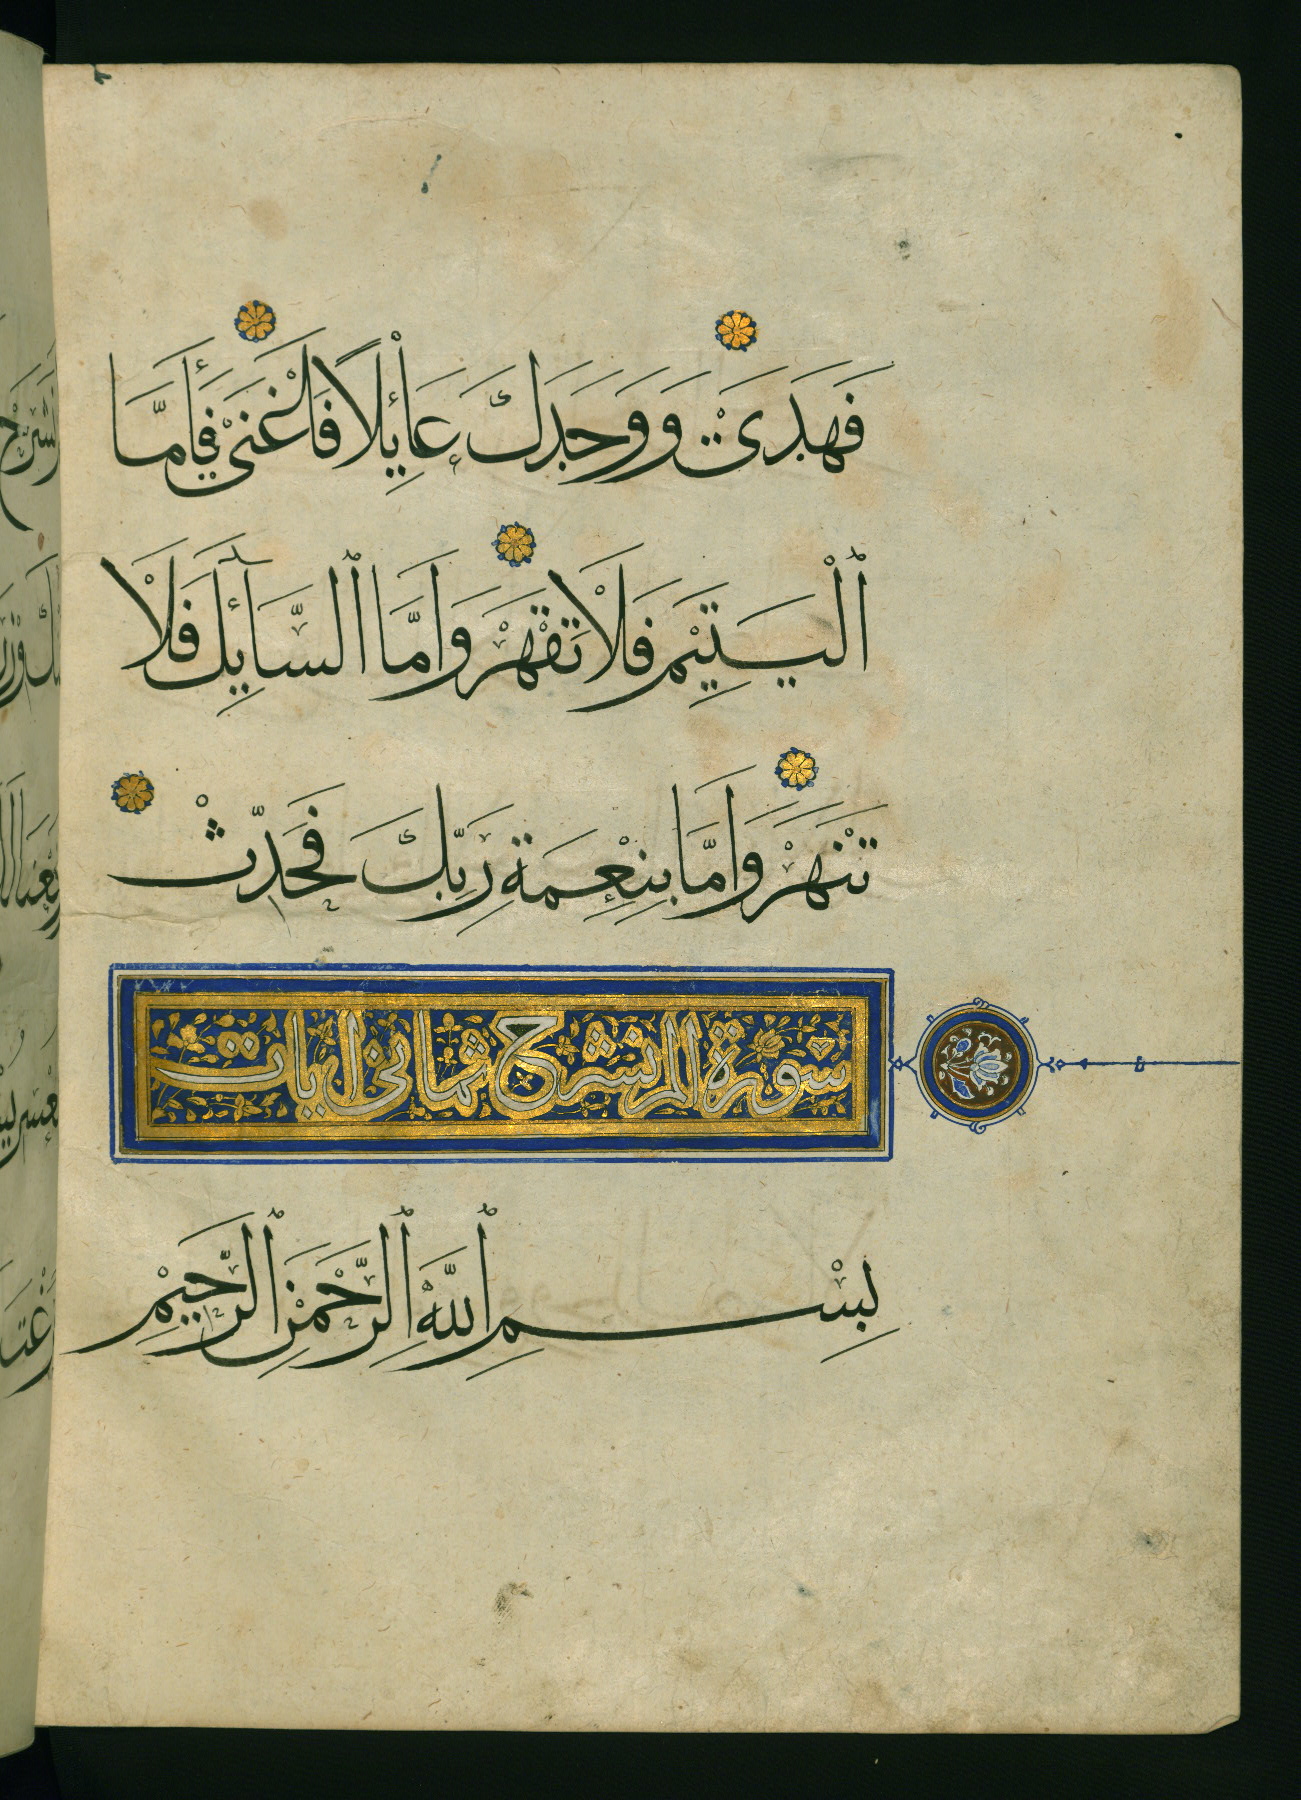 فَهَدَىٰ وَوَجَدَكَ عَائِلًا فَأَغْنَىٰ فَأَمَّا
ٱلْيَتِيْمَ فَلَا تَقْهَرْ وَأَمَّا ٱلسَّآئِلَ فَلَا
تَنْهَرْ وَأَمَّا بِنِعْمَةِ رَبِّكَ فَحَدِّثْ
سورة الم نشرح ثماني ايات
بِسْمِ ٱللَّهِ ٱلرَّحْمٰنِ ٱلرَّحِيْمِ